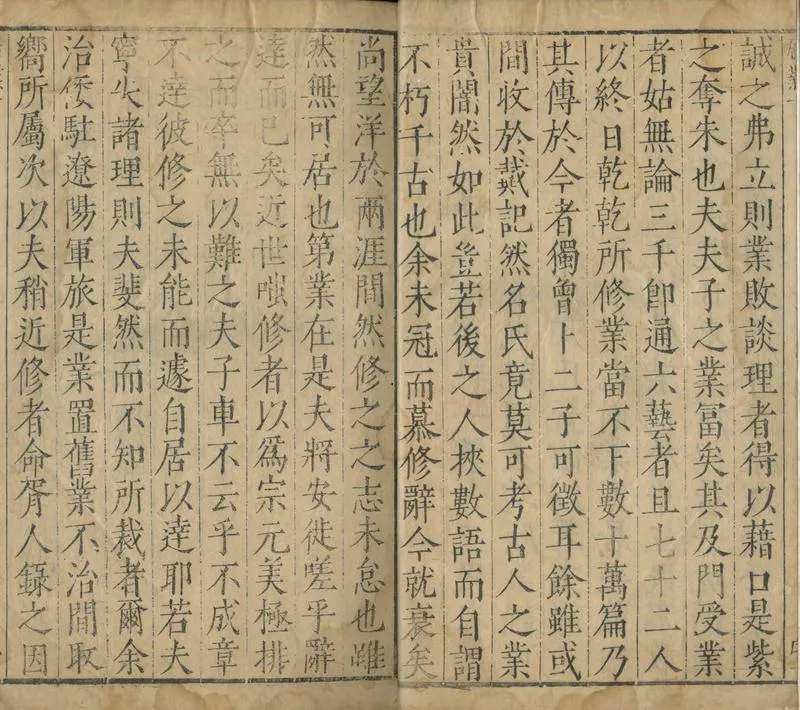 誠之弗立則業敗談理者得以藉口是紫
之奪朱也夫夫子之業冨矣其及門受業
者姑無論三千卽通六藝者且七十二人
以終日乾乾所修業當不下數十萬篇乃
其傳於今者獨曾卜二子可徵耳餘雖或
間收於戴記然名氏竟莫可考古人之業
貴闇然如此豈若後之人挾數語而自謂
不朽千古也余未冠而慕修辭今就衰矣
尚望洋於兩涯間然修之之志未怠也雖
然無可居也第業在是夫將安徙嗟乎辭
達而已矣近世嗤修者以爲宗元美極排
之而卒無以難之夫子車不云乎不成章
不達彼修之未能而遽自居以達耶若夫
寧失諸理則夫斐然而不知所裁者爾余
治倭駐遼陽軍旅是業置舊業不治間取
嚮所屬次以夫稍近修者命胥人錄之因